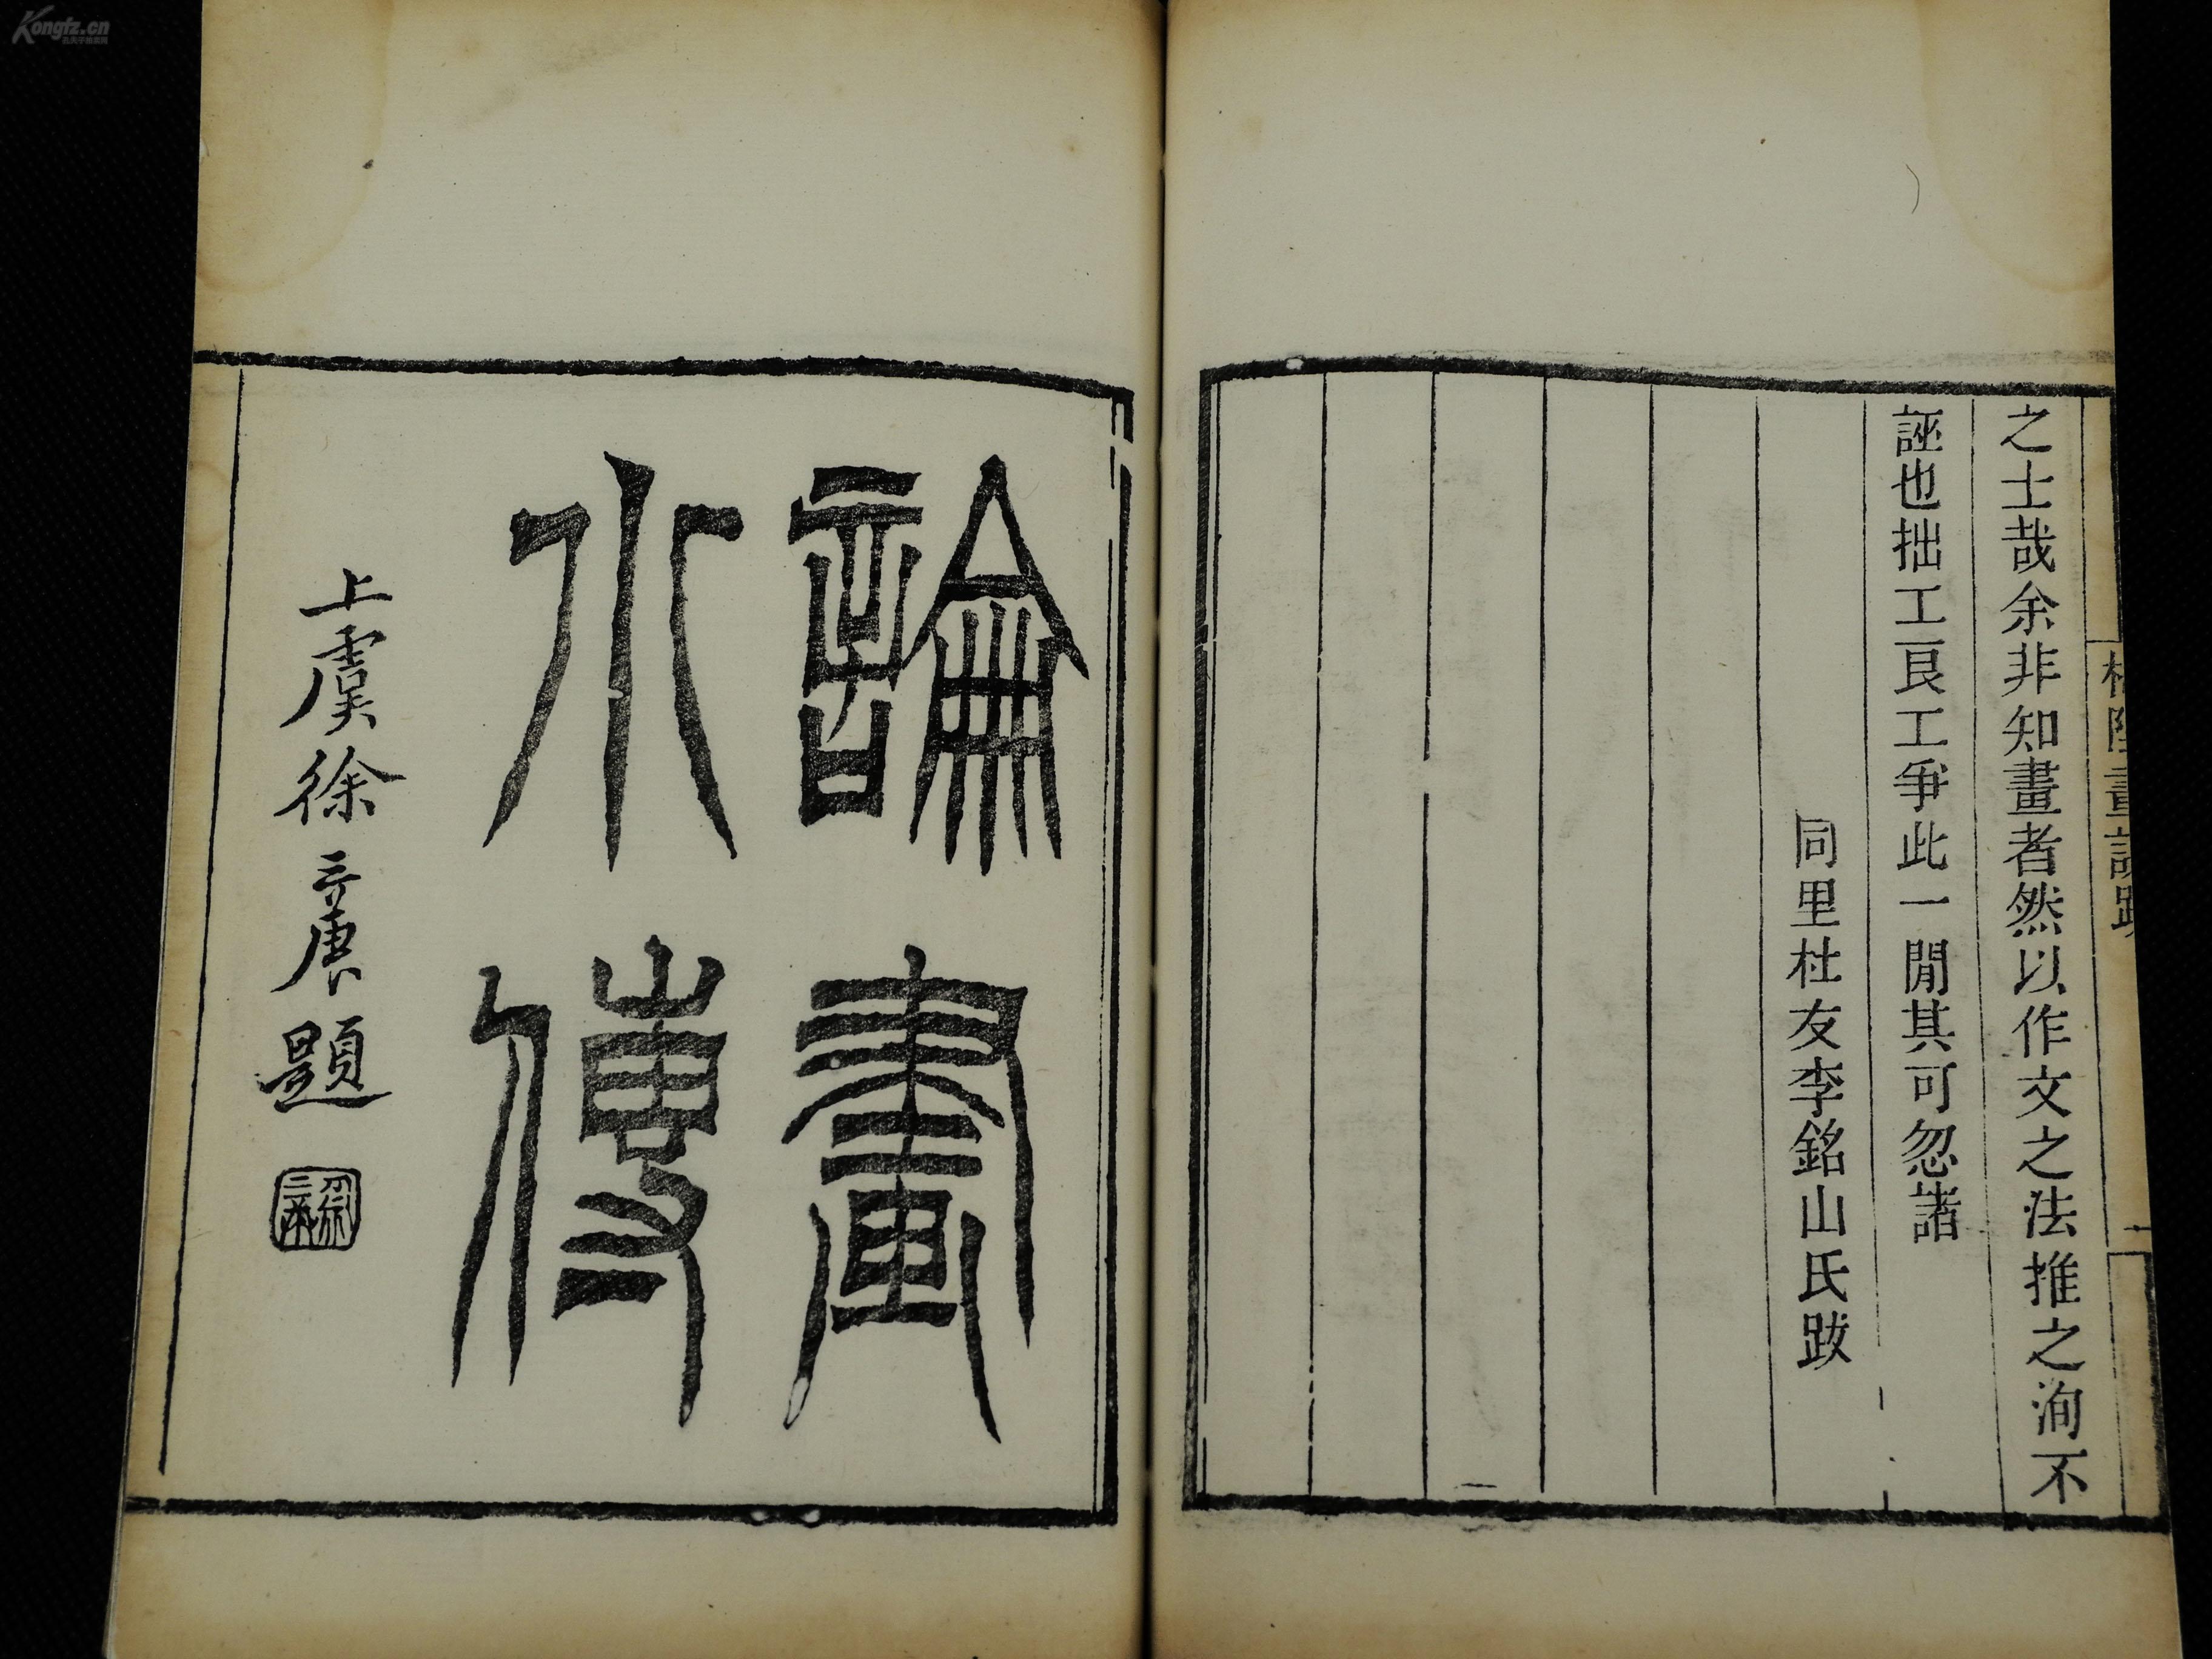 之士哉余非知畫者然以作文之法推之洵不
誣也拙工良工爭此一閒其可忽諸
同里杜友李銘山氏跋
畫
論畫
小傳
上虞徐三庚題
Kongfz.cn